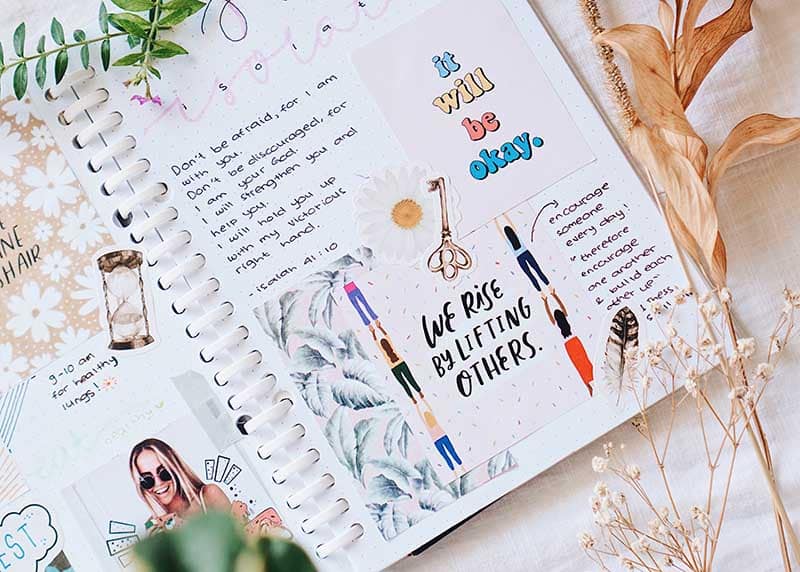 i s o l a t
Don't be afraid, for I am
with you.
Don't be discouraged, for
I am your God.
I will strengthen you and
help you.
I will hold you up
with my victorious
right hand.
-Isaiah 41:10
it
will
be
okay.
WE RISE
BY LIFTING
OTHERS.
encourage
someone
every day!
"therefore
encourage
one another
& build each
other up"
9-10 am
for healthy
lungs!